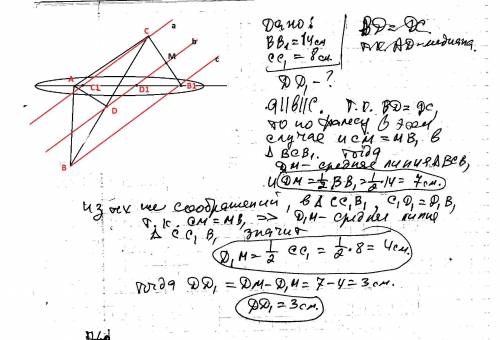 C a
b
M
c
A C1 D1 B1
D
B
Дано:
BB₁=14см
CC₁=8см.
DD₁-?
BD=DC
т.к AD-медиана.
a||b||c. т.к. BD=DC,
то по фалесу в этом
случае и CM=MB₁ в
△BCB₁. Тогда
DM-средняя линия △BCB₁
и DM=½BB₁=½·14=7см.
из тех же соображений, в △CC₁B₁ C₁D₁=D₁B₁
т.к. CM=MB₁ => D₁M-средняя линия
△CC₁B₁ значит
D₁M=½CC₁=½·8=4см.
тогда DD₁=DM-D₁M=7-4=3см.
DD₁=3см.